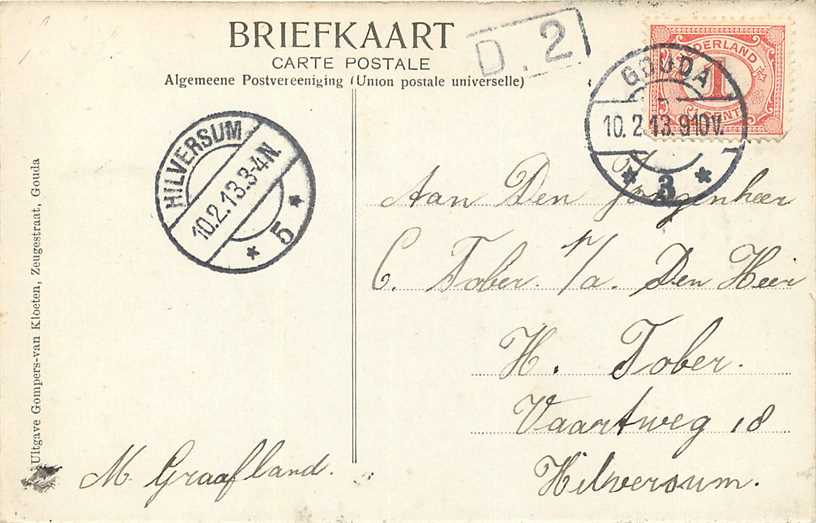 BRIEFKAART
CARTE POSTALE
Algemeene Postvereeniging (Union postale universelle)
D.2
NEDERLAND
1
CENT
GOUDA
10.2.13.910V.
* 3 *
HILVERSUM
10.2.13.3-4N.
* 5 *
Aan Den Jongenheer
C. Tober. p/a. Den Heer
H. Tober.
Vaartweg 18
Hilversum.
M. Graafland.
Uitgave Gompers-van Kloeten, Zeugestraat, Gouda